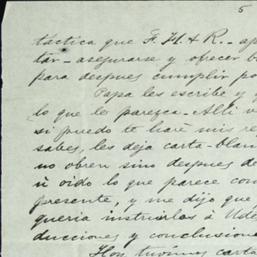 5
táctica que F. H. & R. - ap
tar - asegurarse y ofrecer b
para despues cumplir po
Papa les escribe y
lo que le parezca. Alli v
si puedo te haré mis re
sabes, les deja carta-blan
no obren sino despues de
ú oido lo que parece con
presente, y me dijo que
queria instruirlos á Ude
ducciones y conclusione
Hoy tuvimos carta